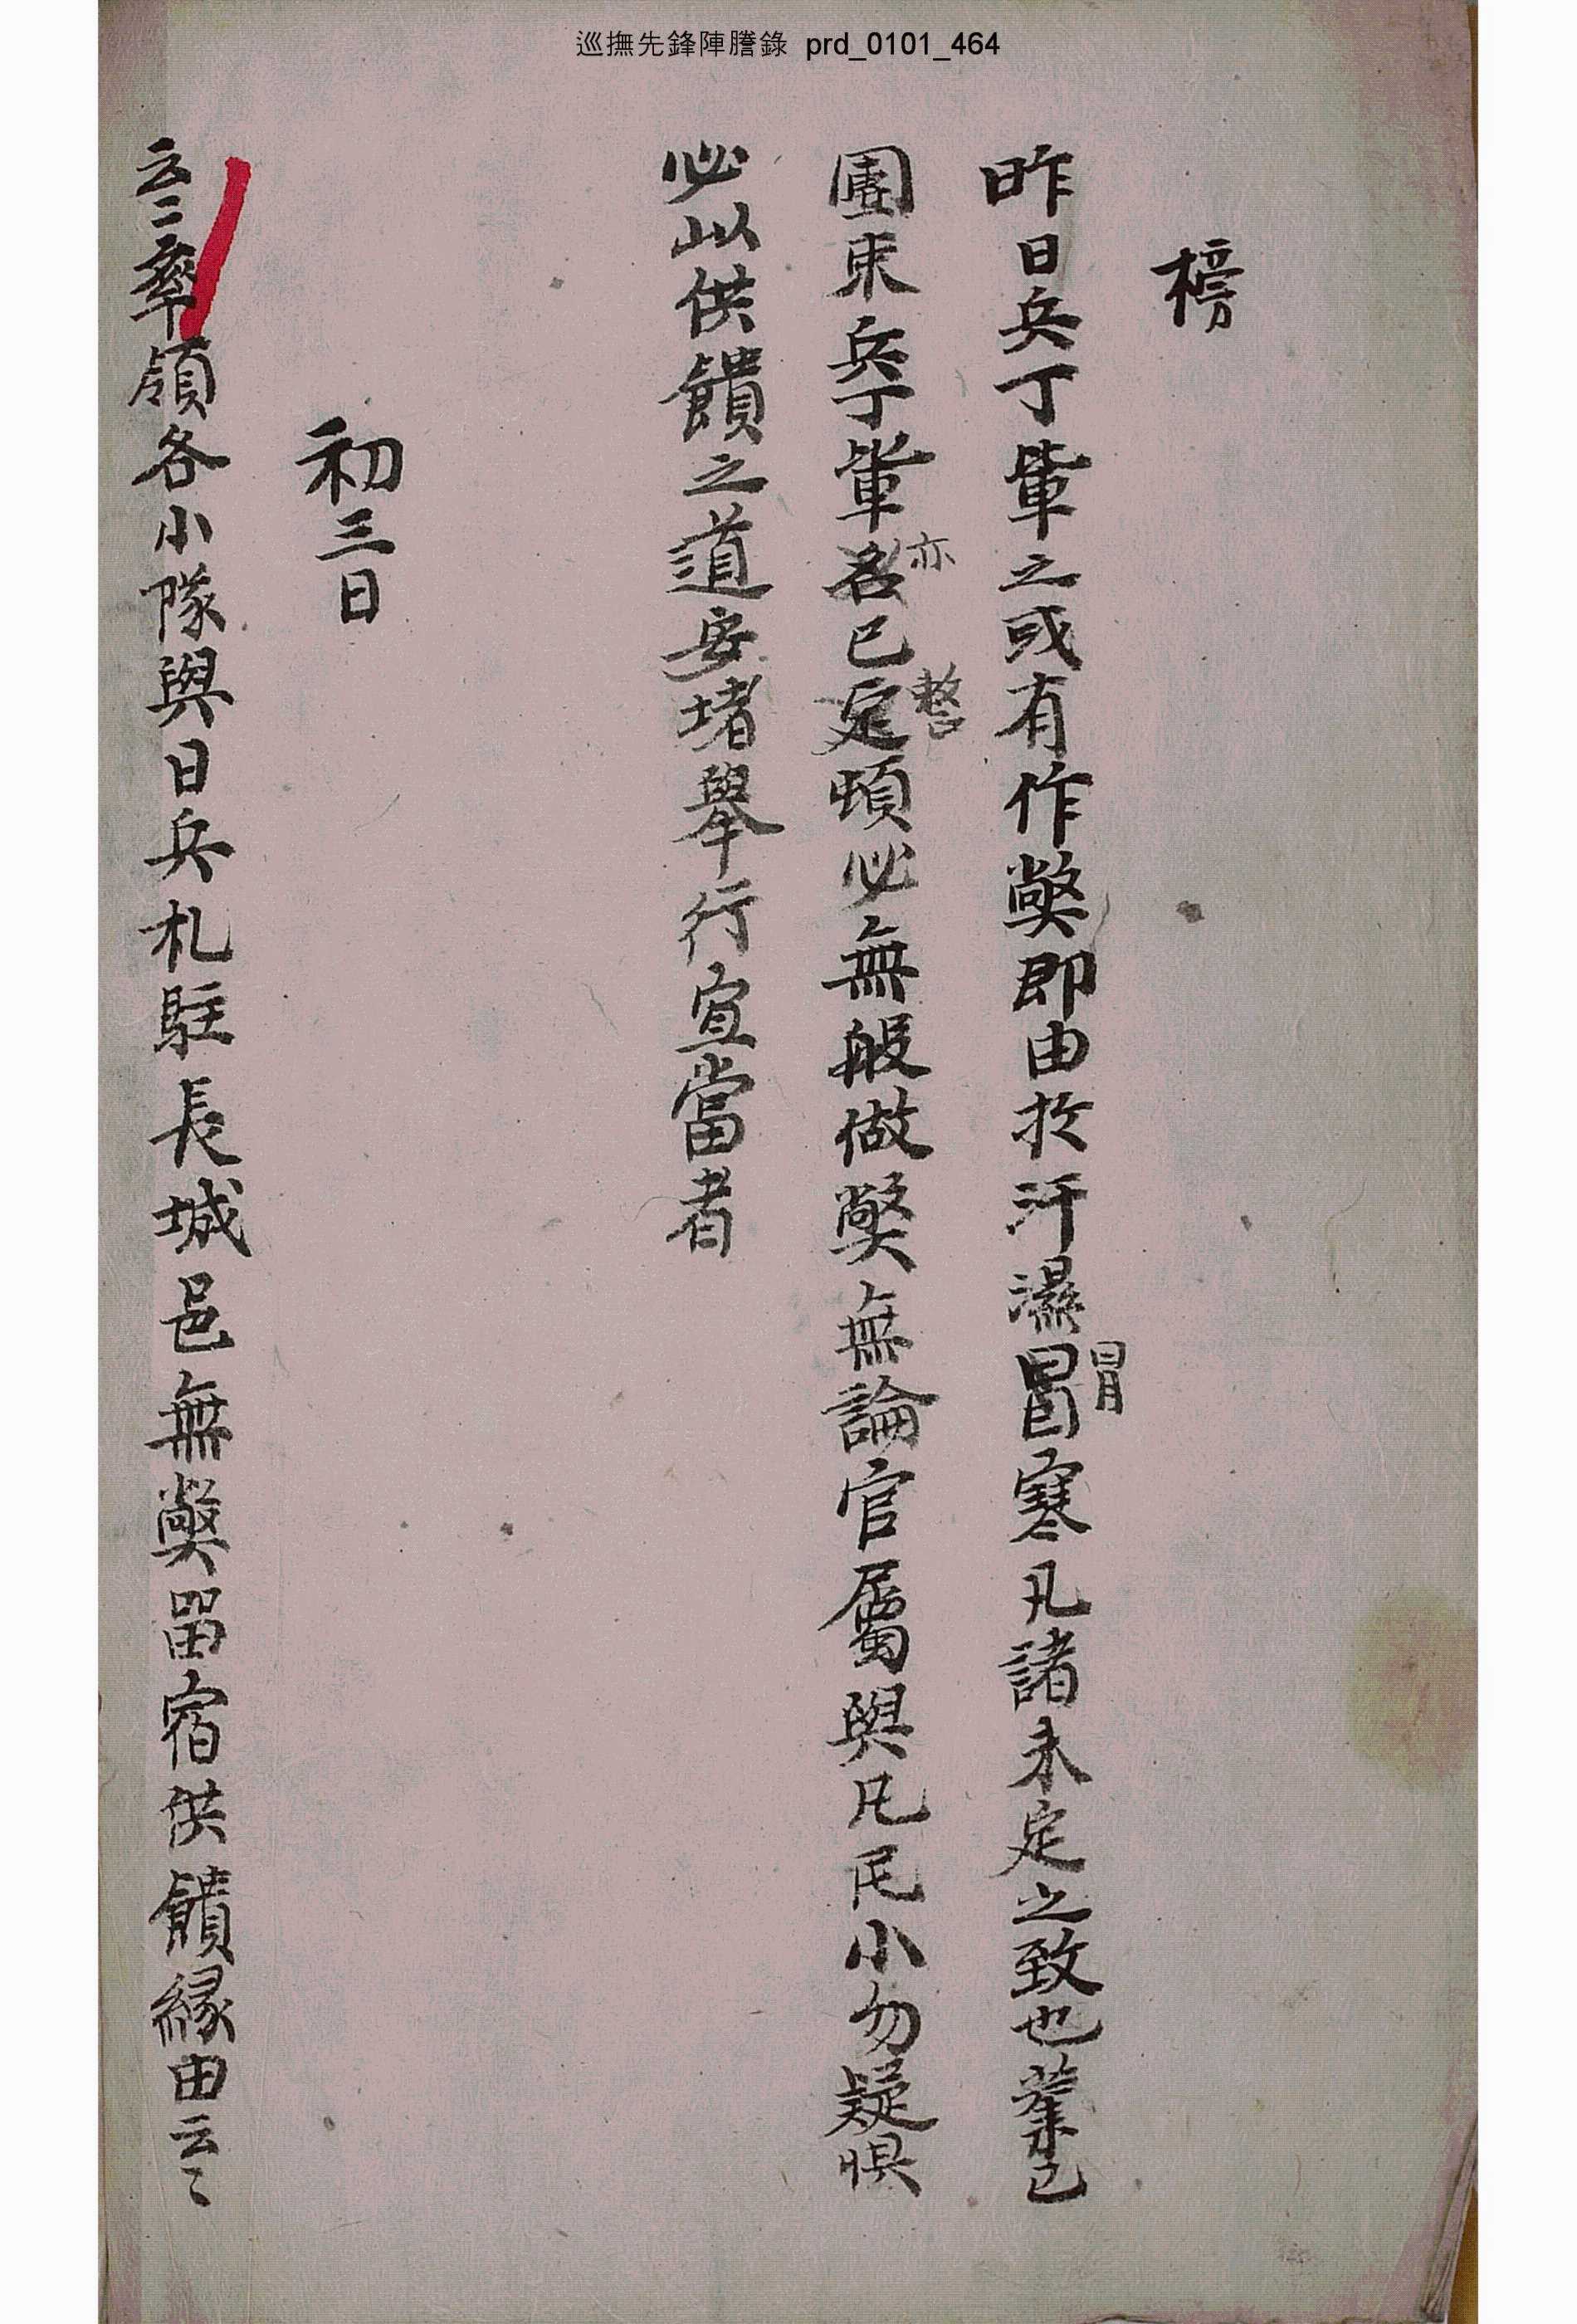 巡撫先鋒陣謄錄 prd_0101_464
榜
昨日兵丁輩之或有作弊即由於汗濕冒寒凡諸未定之致也業已
冒
團束兵丁輩名已定頓必無般做弊無論官屬與凡民小勿疑惧
亦 整
必以供饋之道安堵擧行宜當者
初三日
云〻率領各小隊與日兵札駐長城邑無弊留宿供饋緣由云〻